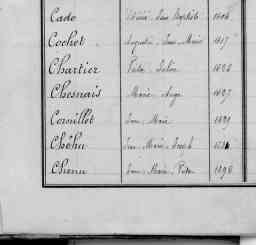 Cado Jean Baptiste
Cochet Augustin Jean Marie 1817
Chartier Victor Julien
Chesnais Marie Ange 1827
Corvillet Jean Marie 1829
Chéhu Jean Marie Joseph
Chenu Jean Marie Victor 1896